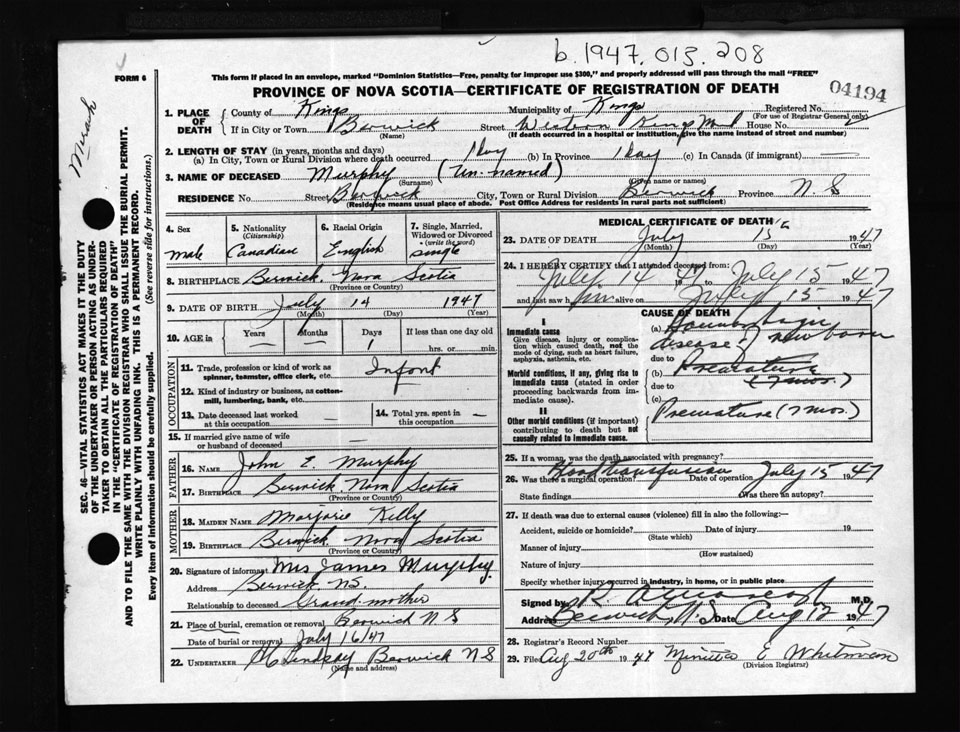 b. 1947. 013. 208
FORM 6
This form if placed in an envelope, marked "Dominion Statistics—Free, penalty for improper use $300," and properly addressed will pass through the mail "FREE"
PROVINCE OF NOVA SCOTIA—CERTIFICATE OF REGISTRATION OF DEATH
04194
SEC. 46—VITAL STATISTICS ACT MAKES IT THE DUTY
OF THE UNDERTAKER OR PERSON ACTING AS UNDER-
TAKER TO OBTAIN ALL THE PARTICULARS REQUIRED
IN THE "CERTIFICATE OF REGISTRATION OF DEATH"
AND TO FILE THE SAME WITH THE DIVISION REGISTRAR WHO SHALL ISSUE THE BURIAL PERMIT.
WRITE PLAINLY WITH UNFADING INK. THIS IS A PERMANENT RECORD.
Every item of information should be carefully supplied. (See reverse side for instructions.)
1. PLACE OF DEATH
County of Kings Municipality of Kings Registered No.
(For use of Registrar General only)
If in City or Town Berwick Street Western Kings House No.
(Name) (If death occurred in a hospital or institution, give the name instead of street and number)
2. LENGTH OF STAY (in years, months and days)
(a) In City, Town or Rural Division where death occurred 1 Day (b) In Province 1 Day (c) In Canada (if immigrant) —
3. NAME OF DECEASED Murphy (Un-named)
(Surname) (Given name or names)
RESIDENCE No. Street Berwick City, Town or Rural Division Berwick Province N. S
(Residence means usual place of abode. Post Office Address for residents in rural parts not sufficient)
4. Sex male
5. Nationality (Citizenship) Canadian
6. Racial Origin English
7. Single, Married, Widowed or Divorced (write the word) single
8. BIRTHPLACE Berwick, Nova Scotia
(Province or Country)
9. DATE OF BIRTH July 14 1947
(Month) (Day) (Year)
10. AGE in Years — Months — Days 1 If less than one day old hrs. or min.
OCCUPATION
11. Trade, profession or kind of work as spinner, teamster, office clerk, etc. Infant
12. Kind of industry or business, as cotton-mill, lumbering, bank, etc.
13. Date deceased last worked at this occupation —
14. Total yrs. spent in this occupation —
15. If married give name of wife or husband of deceased —
FATHER
16. NAME John E. Murphy
17. BIRTHPLACE Berwick, Nova Scotia
(Province or Country)
MOTHER
18. MAIDEN NAME Marjorie Kelly
19. BIRTHPLACE Berwick, Nova Scotia
(Province or Country)
20. Signature of informant Mrs James Murphy
Address Berwick NS.
Relationship to deceased Grand-mother
21. Place of burial, cremation or removal Berwick N S
Date of burial or removal July 16/47
22. UNDERTAKER Lindsay Berwick N S
(Name and address)
MEDICAL CERTIFICATE OF DEATH
23. DATE OF DEATH July 15 1947
(Month) (Day) (Year)
24. I HEREBY CERTIFY that I attended deceased from:
July 14 47 July 15 1947
and last saw him alive on July 15 1947
CAUSE OF DEATH
I
Immediate cause
Give disease, injury or complication which caused death, not the mode of dying, such as heart failure, asphyxia, asthenia, etc.
(a) Haemorrhagic disease of newborn
due to
Morbid conditions, if any, giving rise to immediate cause (stated in order proceeding backwards from immediate cause).
(b) Premature (7 mos.)
due to
(c)
II
Other morbid conditions (if important) contributing to death but not causally related to immediate cause.
Premature (7 mos.)
25. If a woman, was the death associated with pregnancy?
26. Was there a surgical operation? Blood transfusion Date of operation July 15 1947
State findings Was there an autopsy?
27. If death was due to external causes (violence) fill in also the following:—
Accident, suicide or homicide? Date of injury 19
(State which)
Manner of injury
(How sustained)
Nature of injury
Specify whether injury occurred in industry, in home, or in public place
Signed by R. M.D.
Address Berwick, N.S. Date Aug 12 1947
28. Registrar's Record Number
29. Filed Aug 20th 1947 E Whitman
(Division Registrar)